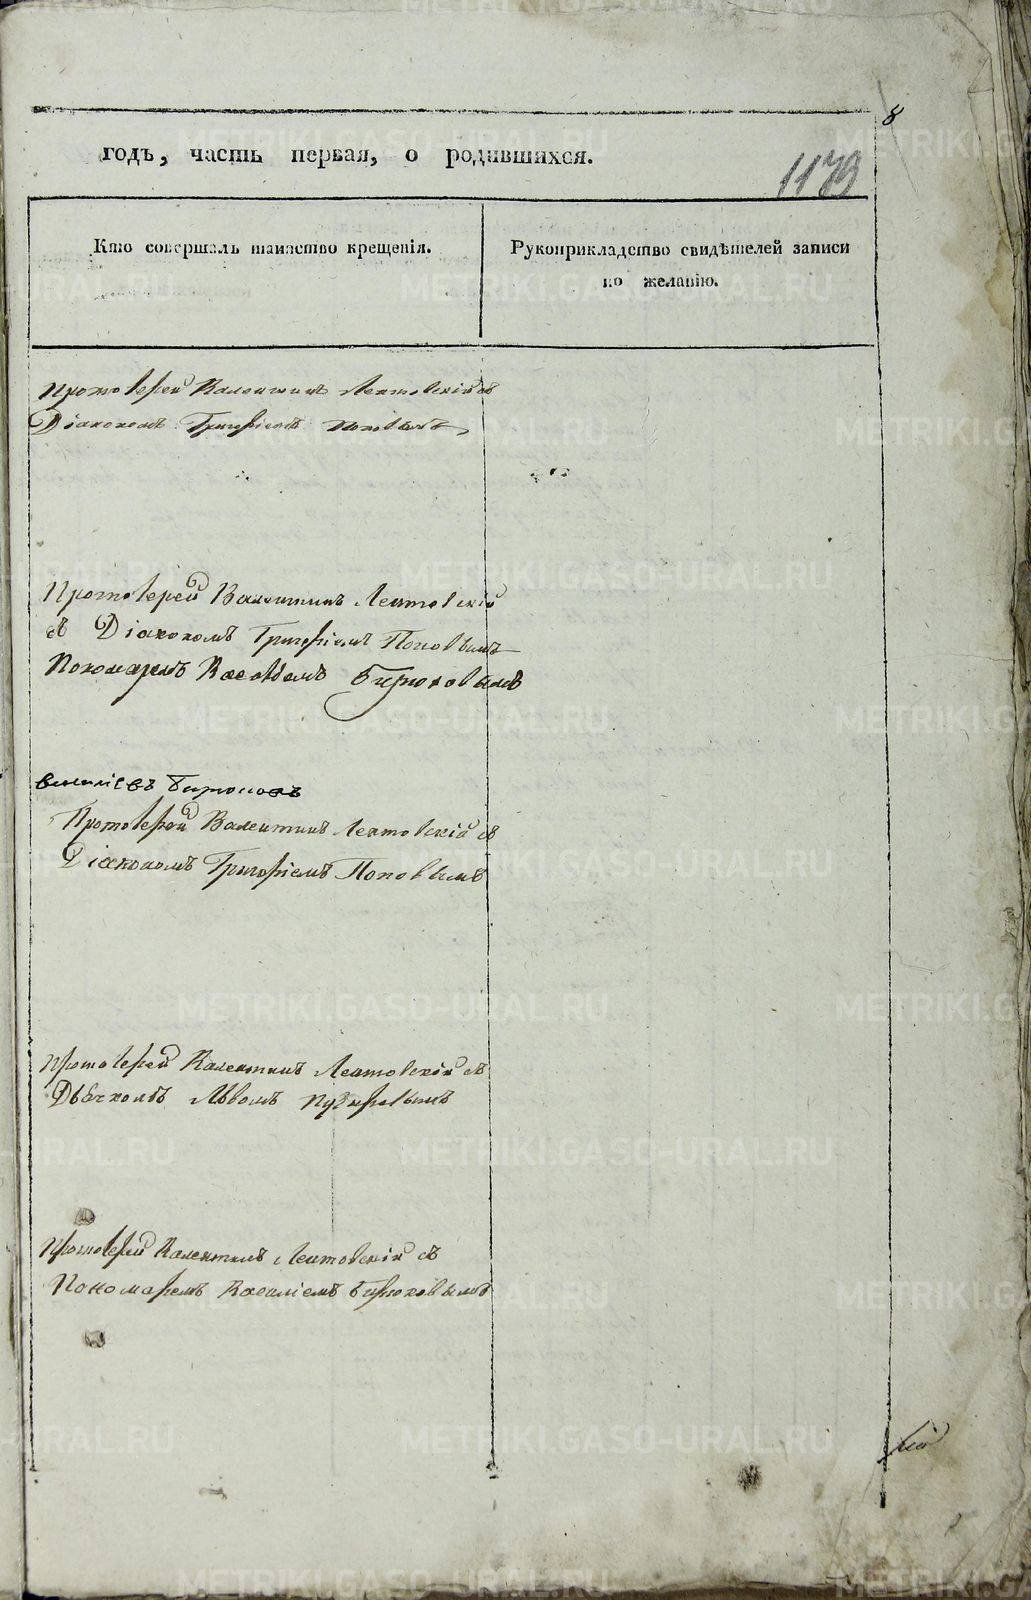 8
годъ, часть первая, о родившихся.
1179
Кто совершалъ таинство крещенія.
Рукоприкладство свидѣтелей записи
по желанію.
Протоіерей Валентинъ Лентовскій съ
Діакономъ Григоріемъ Поповымъ
Протоіерей Валентинъ Лентовскій
съ Діакономъ Григоріемъ Поповымъ
Пономаремъ Бирюковымъ
Бирюковъ
Протоіерей Валентинъ Лентовскій съ
Діакономъ Григоріемъ Поповымъ
Протоіерей Валентинъ Лентовскій съ
Дьячкомъ Львомъ Пузыревымъ
Протоіерей Валентинъ Лентовскій съ
Пономаремъ Василіемъ Бирюковымъ
METRIKI.GASO-URAL.RU